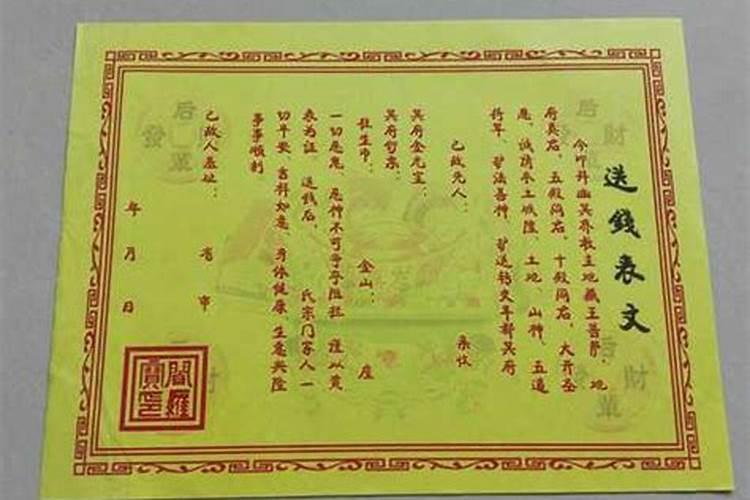 送錢表文
今叩拜幽冥界教主地藏王菩萨、地
府君、五殿阎君、十殿阎君、大齐圣
诚请本土城隍、土地、山神、五道
将军、护法善神、护送钱文车辇冥府
已故先人： 亲收
冥府金元宝：
冥府 金山： 座
往生币：
一切恶鬼、恶神不可争夺阻拦、谨以黄
表为证、送钱后、 氏宗门家人一
切平安、吉祥如意、身体健康、生意兴隆
事事顺利
已故人墓址： 省 市
年 月 日
閻羅寶印